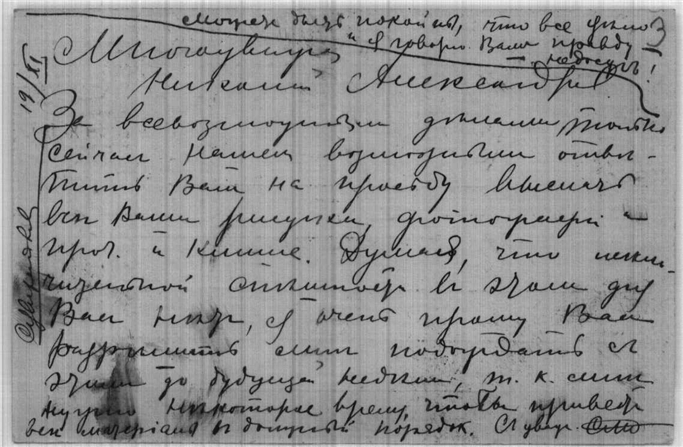 Можете быть покойны, что все цѣло
и я говорю Вамъ правду
19/XI
Многоуважаем
Николай Александр
За всевозможными дѣлами только
сейчас нашел возможным отвѣ-
тить Вам на просьбу выслать
все Ваши рисунки, фотографии и
проч. и книги. Думая, что исклю-
чительной спешности в этом для
Вас нет, я очень прошу Вас
разрешить мне подождать с
этим до будущей недели, т. к. мне
нужно некоторое время, чтобы привести
все материалы в должный порядок. С уваж.